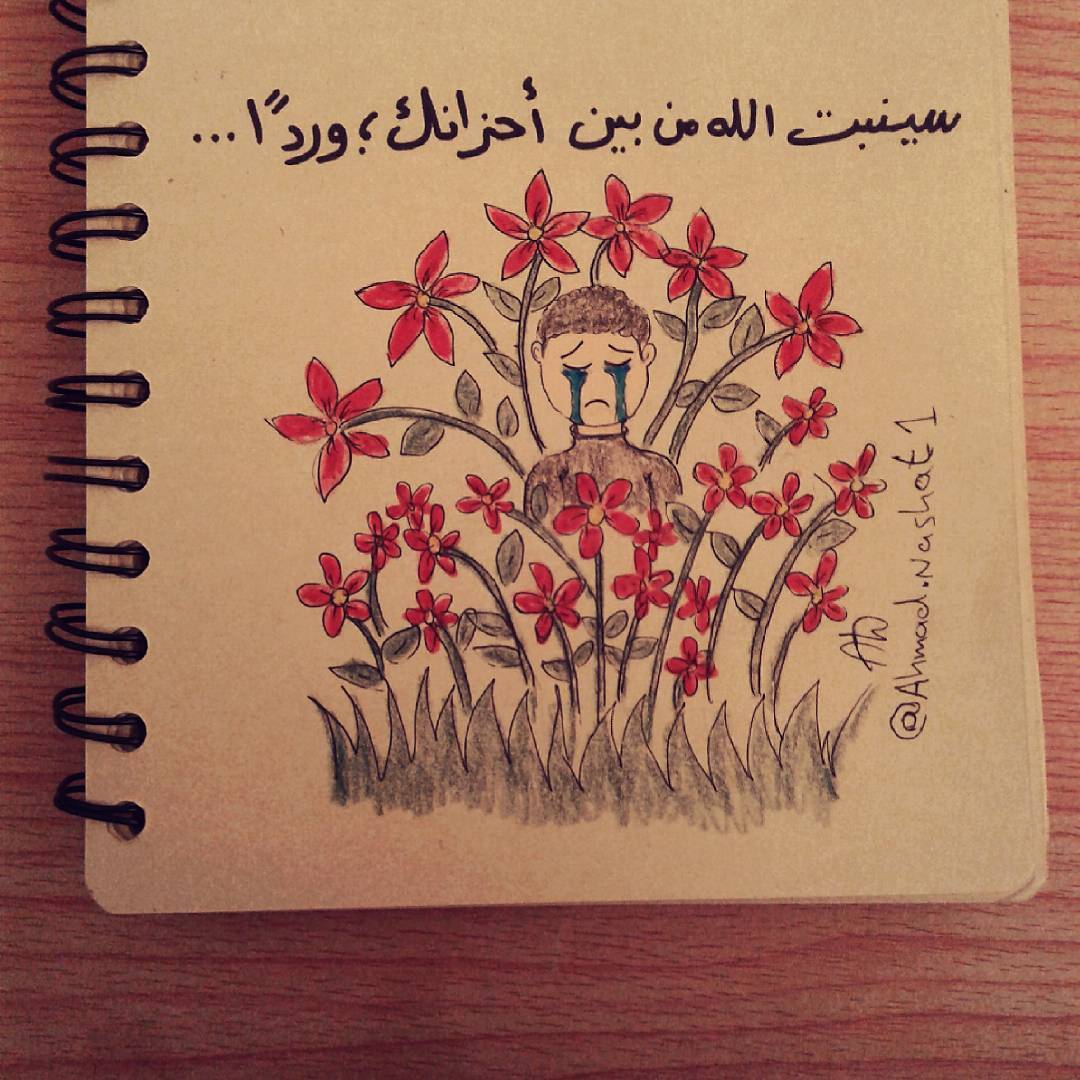 سينبت الله من بين أحزانك؛ وردًا...
@Ahmad.Nashat1